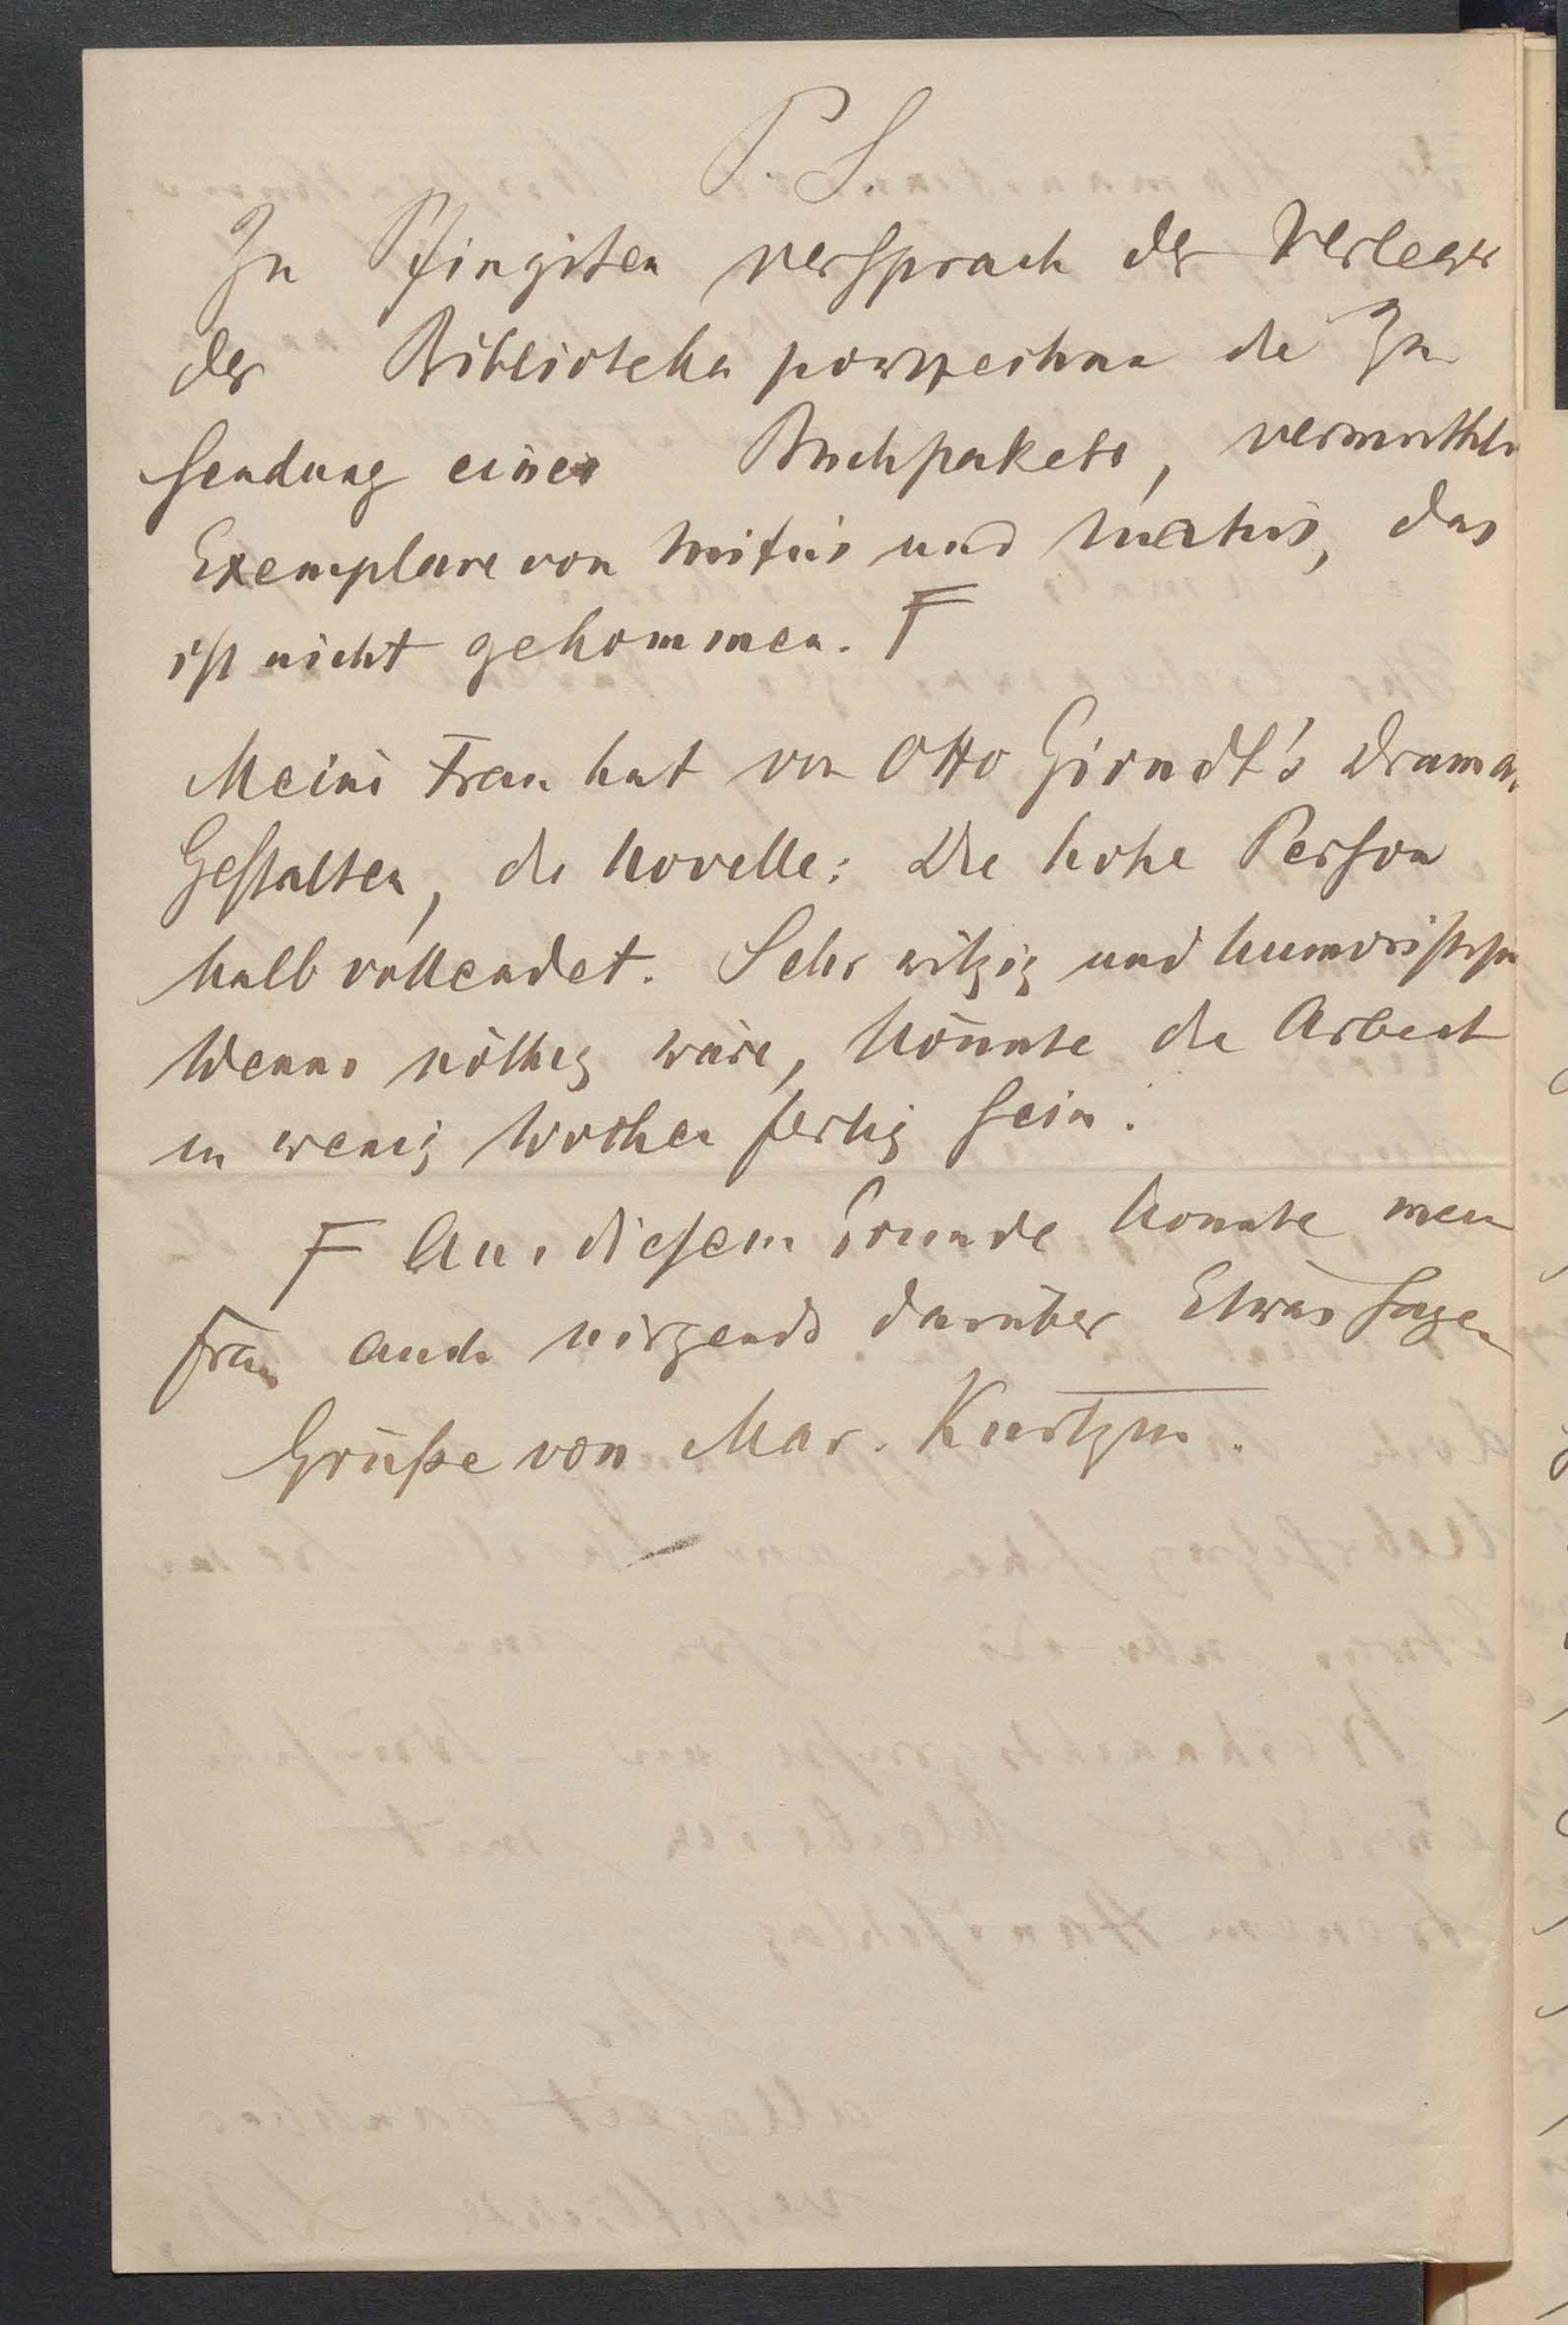 P. S.
Zu Pfingsten versprach der Verleger
der Biblioteka powszechna die Zu
sendung eines Buchpakets, vermuthl
Exemplare von und das
ist nicht gekommen. F
Meine Frau hat von Otto Girndt's Drama.
Gestalten, die Novelle: Die hohe Person
halb vollendet. Sehr witzig und humoristisch
Wenns nöthig wäre, könnte die Arbeit
in wenig Wochen fertig sein.
F Aus diesem Grunde konnte mein
Frau auch nirgends darüber Etwas sagen
Grüße von Mar. Kurtzm.